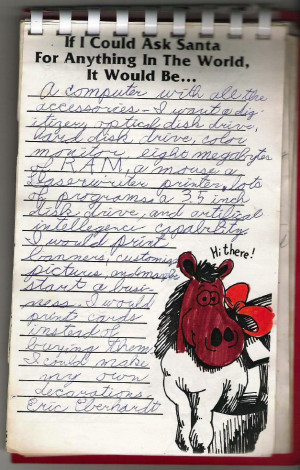 If I Could Ask Santa
For Anything In The World,
It Would Be...
A computer with all the
accessories - I want a dig-
itizer, optical dish drive,
hard disk drive, color
monitor, eight megabytes
of RAM, a mouse, a
laserwriter printer, lots
of programs, a 3.5 inch
disk drive, and artificial
intelligence capability.
I would print
banners, customize
pictures, and maybe
start a busi-
ness. I would
print cards
instead of
buying them.
I could make
my own
decorations.
Eric Eberhardt
Hi there!